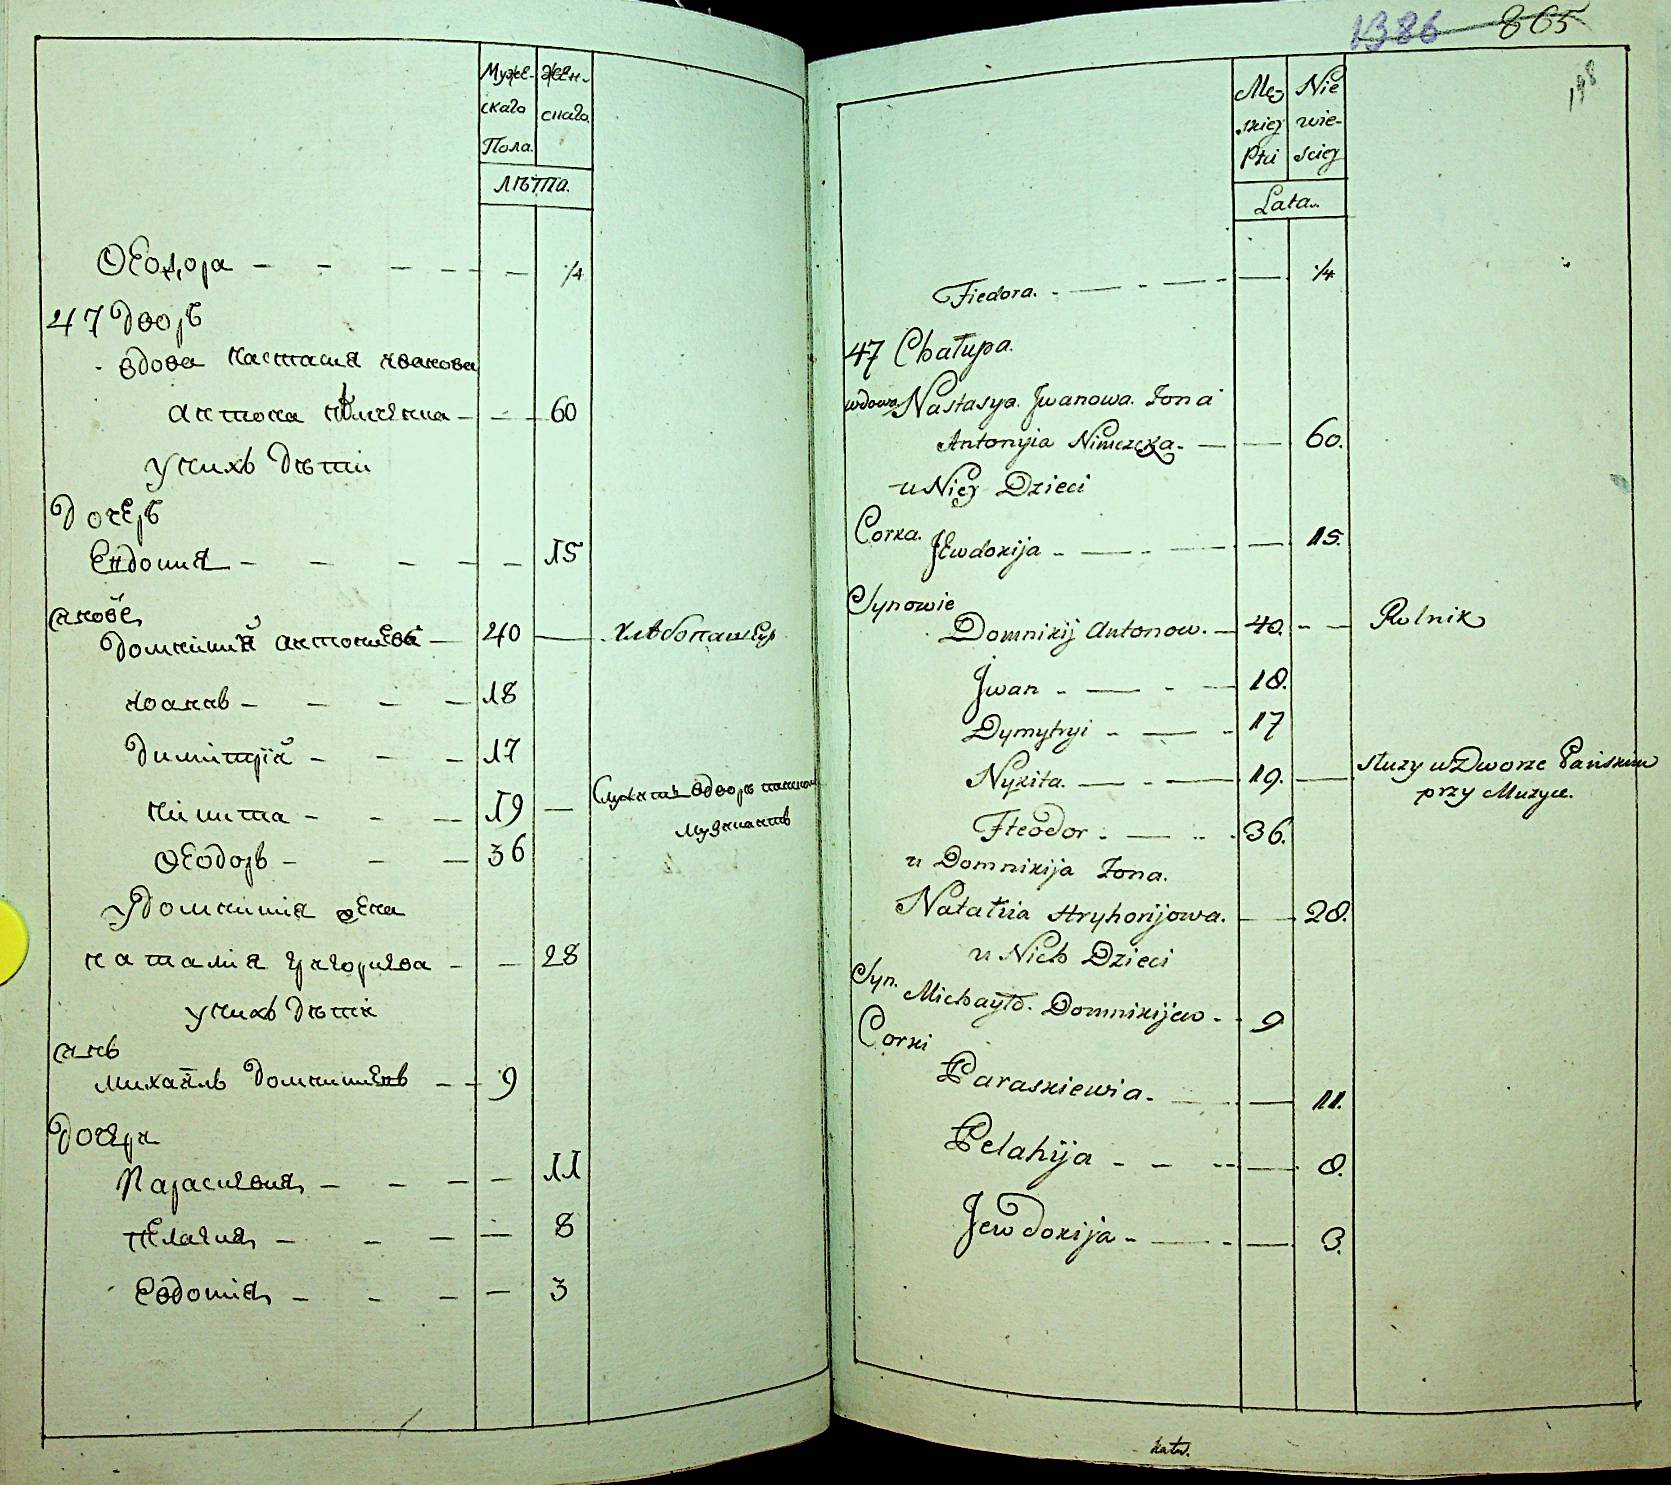 Муже- Жен-
скаго скаго
Пола.
Лѣта.
Ѳеодора - - - - - 1/4
47 Дворъ
вдова Настасия Иванова
Антона - - 60
у нихъ дѣти
Дочерь
Евдокия - - - - - 15
Синове
Домникий Антониевъ - 40 - хлѣбопашецъ
Иоанъ - - - - 18
Димитрий - - - 17
Никита - - - 19 - Служитъ вдворѣ панском
музикантъ
Ѳеодоръ - - - 36
У Домникия жена
Наталия Григориева - - 28
у нихъ дѣти
Синъ
Михайлъ Домникиевъ - - 9
Дочери
Параскевия - - - - 11
Пелагия - - - - 8
Евдокия - - - - 3
1386 865
198
Męz Nie
skiej wie-
Płci sciej
Lata.
Fiedora. - - - - 1/4
47 Chałupa.
wdowa Nastasya Jwanowa Żona
Antonyia Nimczyka. - - 60.
u Niej Dzieci
Corka.
Jewdokija - - - - 15.
Synowie
Domnikij Antonow. - 40. - - Rolnik
Jwan - - - - 18.
Dymytryi - - - 17
Nykita. - - - 19. - służy u Dworze Pańskim
przy Muzyce.
Fteodor - - - 36.
u Domnikija Żona.
Natałia Hryhorijowa. - 28.
u Nich Dzieci
Syn.
Michayło. Domnikijew - - 9
Corki
Paraskiewia. - - 11.
Pelahija - - - - 8.
Jewdokija - - - - 3.